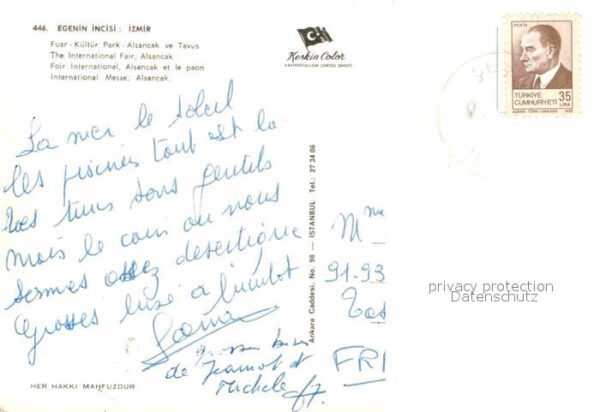 446. EGENİN İNCİSİ : İZMİR
Fuar - Kültür Park - Alsancak ve Tavus
The International Fair, Alsancak
Foir International, Alsancak et le paon
International Messe, Alsancak.
Keskin Color
KARTPOSTALCILIK LIMITED ŞİRKETİ
POSTA
TÜRKİYE
CUMHURİYETİ
35
LİRA
La mer le soleil
les piscines tout est la
Les turcs sont gentils
mais le coin ou nous
sommes assez desertique
Grosses bises a bientot
de Jeannot et
Michele
Ankara Caddesi, No. 98 — ISTANBUL Tel.: 27 34 06
Mme
91-93
FR
privacy protection
Datenschutz
HER HAKKI MAHFUZDUR